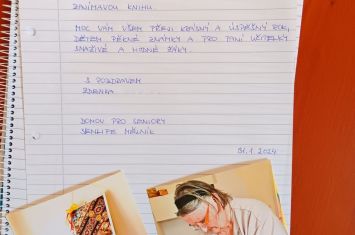 ZAJÍMAVOU KNIHU.
MOC VÁM VŠEM PŘEJI KRÁSNÝ A ÚSPĚŠNÝ ROK,
DĚTEM PĚKNÉ ZNÁMKY A PRO PANÍ UČITELKY
SNAŽIVÉ A HODNÉ ŽÁKY.
S POZDRAVEM
ZDENKA
DOMOV PRO SENIORY
SENLIFE MĚLNÍK
31.1.2024